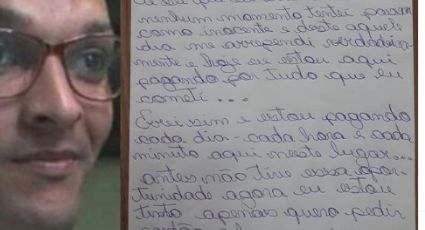 nenhum momento tentei passar
como inocente e deste aquele
dia me arrependi verdadeira-
mente e hoje eu estou aqui
pagando por tudo que eu
cometi...
Errei sim e estou pagando
cada dia - cada hora e cada
minuto aqui neste lugar...
antes não tive essa opor-
tunidade agora eu estou
tinto apenas quero pedir